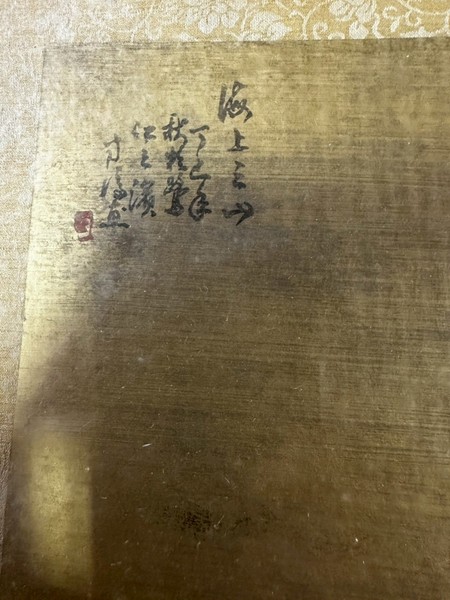 海上三山
丁巳年
秋於鷺
江之濱